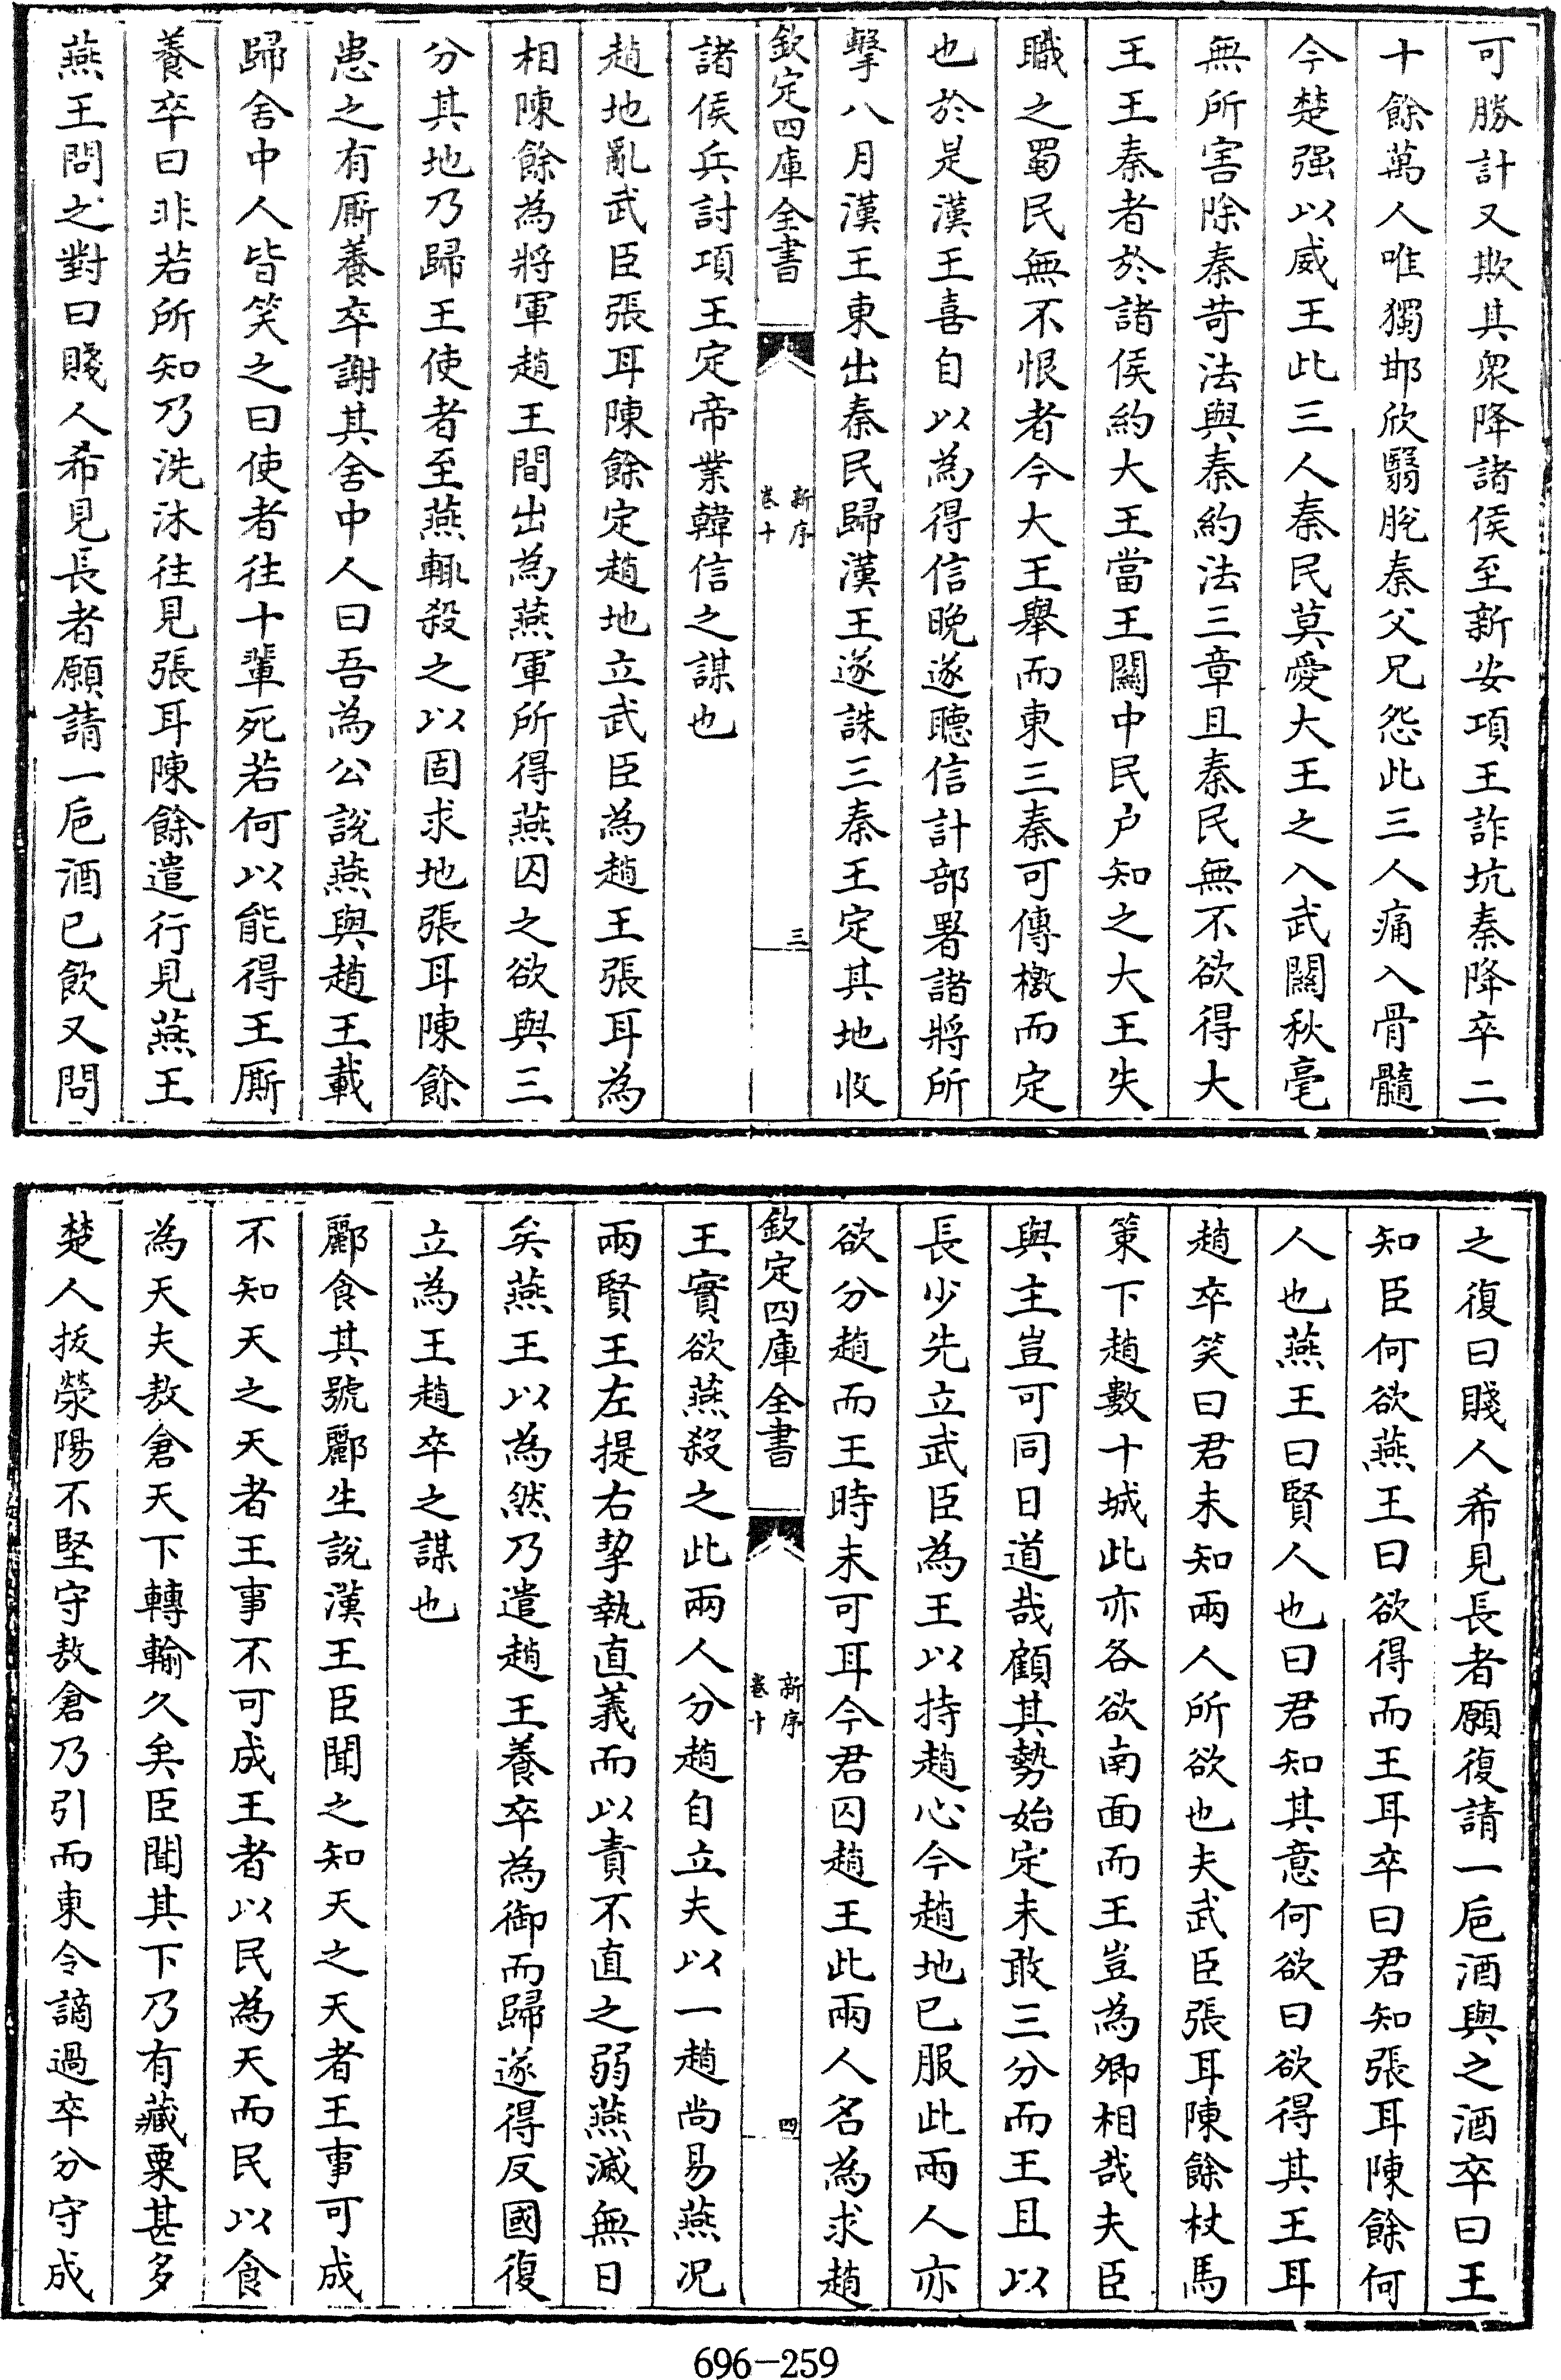 可勝計又欺其衆降諸侯至新安項王詐坑秦降卒二
十餘萬人唯獨邯欣翳脫秦父兄怨此三人痛入骨髓
今楚强以威王此三人秦民莫愛大王之入武關秋毫
無所害除秦苛法與秦約法三章且秦民無不欲得大
王王秦者於諸侯約大王當王關中民户知之大王失
職之蜀民無不恨者今大王舉而東三秦可傳檄而定
也於是漢王喜自以為得信晚遂聽信計部署諸將所
擊八月漢王東出秦民歸漢王遂誅三秦王定其地收
欽定四庫全書
新序
卷十
三
諸侯兵討項王定帝業韓信之謀也
趙地亂武臣張耳陳餘定趙地立武臣為趙王張耳為
相陳餘為將軍趙王間出為燕軍所得燕囚之欲與三
分其地乃歸王使者至燕輒殺之以固求地張耳陳餘
患之有厮養卒謝其舍中人曰吾為公說燕與趙王載
歸舍中人皆笑之曰使者往十輩死若何以能得王厮
養卒曰非若所知乃洗沐往見張耳陳餘遣行見燕王
燕王問之對曰賤人希見長者願請一巵酒已飲又問
之復曰賤人希見長者願復請一巵酒與之酒卒曰王
知臣何欲燕王曰欲得而王耳卒曰君知張耳陳餘何
人也燕王曰賢人也曰君知其意何欲曰欲得其王耳
趙卒笑曰君未知兩人所欲也夫武臣張耳陳餘杖馬
策下趙數十城此亦各欲南面而王豈為卿相哉夫臣
與主豈可同日道哉顧其勢始定未敢三分而王且以
長少先立武臣為王以持趙心今趙地已服此兩人亦
欲分趙而王時未可耳今君囚趙王此兩人名為求趙
欽定四庫全書
新序
卷十
四
王實欲燕殺之此兩人分趙自立夫以一趙尚易燕况
兩賢王左提右挈執直義而以責不直之弱燕滅無日
矣燕王以為然乃遣趙王養卒為御而歸遂得反國復
立為王趙卒之謀也
酈食其號酈生說漢王臣聞之知天之天者王事可成
不知天之天者王事不可成王者以民為天而民以食
為天夫敖倉天下轉輸久矣臣聞其下乃有藏粟甚多
楚人拔滎陽不堅守敖倉乃引而東令謫過卒分守成
696-259